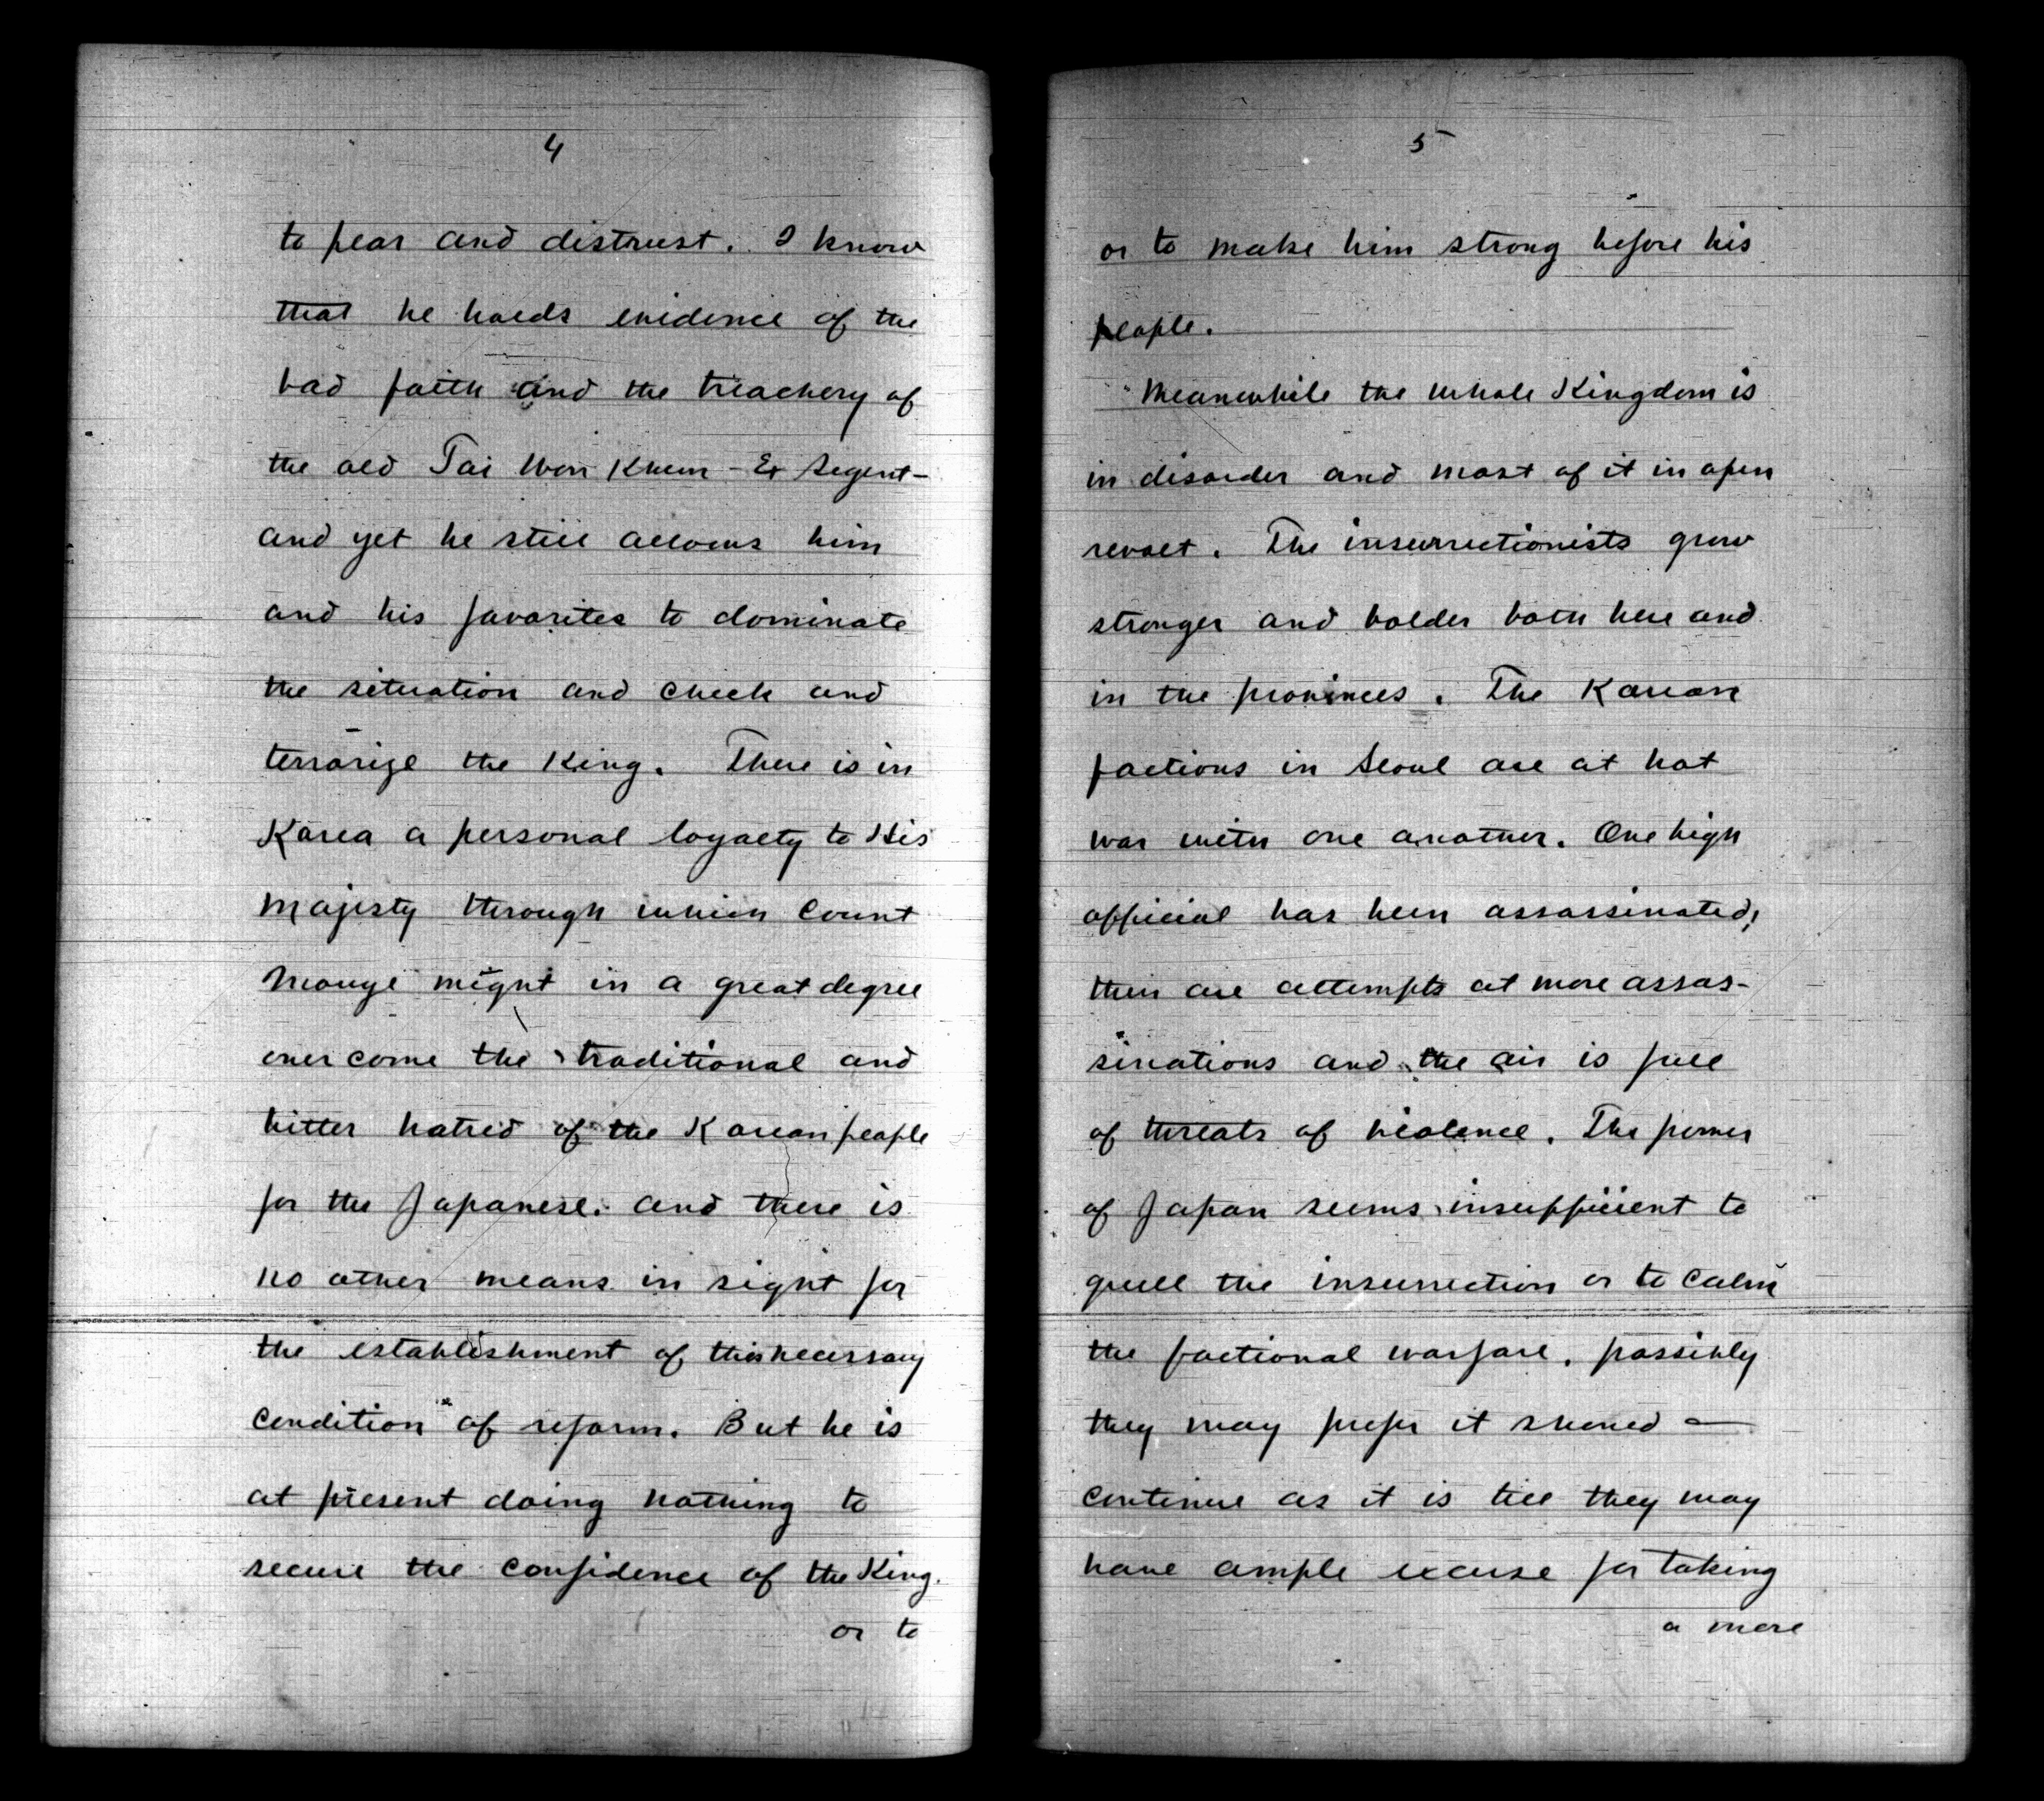 4
to fear and distrust. I know
that he holds evidence of the
bad faith and the treachery of
the old Tai Won Khun - Ex Regent -
and yet he still allows him
and his favorites to dominate
the situation and check and
terrorize the King. There is in
Korea a personal loyalty to His
Majesty through which Count
Inouye might in a great degree
over come the traditional and
bitter hatred of the Korean people
for the Japanese. and there is
no other means in sight for
the establishment of this necessary
condition of reform. But he is
at present doing nothing to
secure the confidence of the King.
or to
5
or to make him strong before his
people.
Meanwhile the whole Kingdom is
in disorder and most of it in open
revolt. The insurrectionists grow
stronger and bolder both here and
in the provinces. The Korean
factions in Seoul are at hot
war with one another. One high
official has been assassinated;
their are attempts at more assas-
sinations and the air is full
of threats of violence. The power
of Japan seems insufficient to
quell the insurrection or to calm
the factional warfare. possibly
they may prefer it should —
continue as it is till they may
have ample excuse for taking
a more